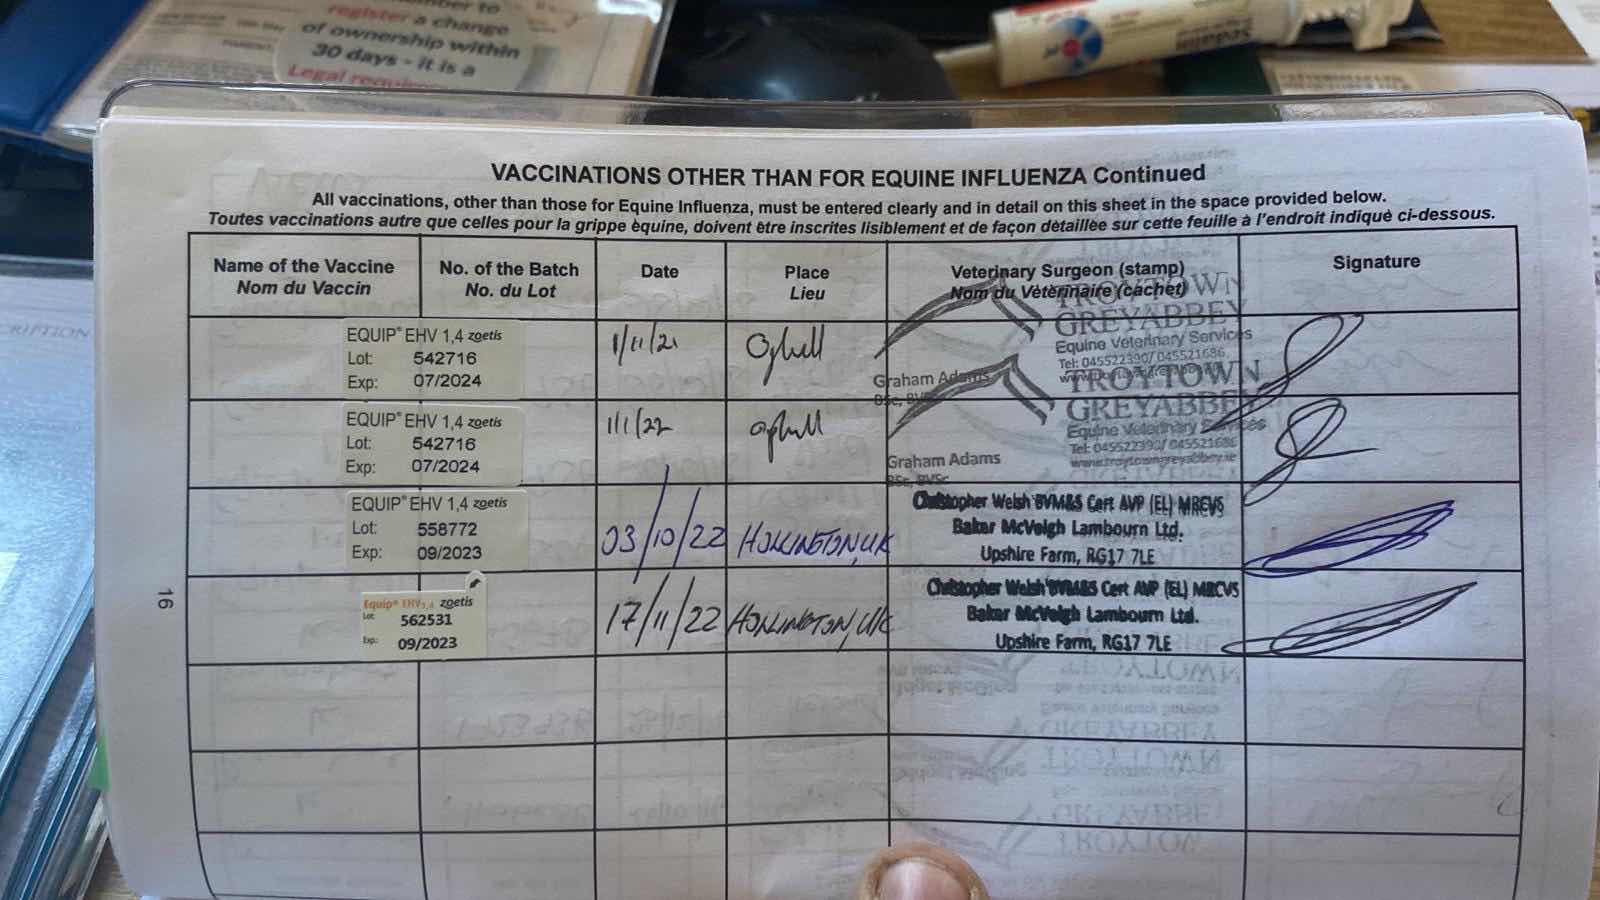 register a change
of ownership within
30 days - it is a
Legal
VACCINATIONS OTHER THAN FOR EQUINE INFLUENZA Continued
All vaccinations, other than those for Equine Influenza, must be entered clearly and in detail on this sheet in the space provided below.
Toutes vaccinations autre que celles pour la grippe èquine, doivent ètre inscrites lisiblement et de façon dètaillèe sur cette feuille a l'endroit indiquè ci-dessous.
Name of the Vaccine
Nom du Vaccin
No. of the Batch
No. du Lot
Date
Place
Lieu
Veterinary Surgeon (stamp)
Nom du Vètèrinaire (cachet)
Signature
EQUIP® EHV 1,4 zoetis
Lot: 542716
Exp: 07/2024
1/11/21
TROYTOWN
GREYABBEY
Equine Veterinary Services
Tel: 045522390/ 045521686
Graham Adams
BSc, BVSc
EQUIP® EHV 1,4 zoetis
Lot: 542716
Exp: 07/2024
1/1/22
TROYTOWN
GREYABBEY
Equine Veterinary Services
Tel: 045522390/ 045521686
www.troytowngreyabbey.ie
Graham Adams
BSc, BVSc
EQUIP® EHV 1,4 zoetis
Lot: 558772
Exp: 09/2023
03/10/22
HOLLINGTON, UK
Christopher Welsh BVM&S Cert AVP (EL) MRCVS
Baker McVeigh Lambourn Ltd.
Upshire Farm, RG17 7LE
Equip® EHV1,4 zoetis
Lot: 562531
Exp: 09/2023
17/11/22
HOLLINGTON, UK
Christopher Welsh BVM&S Cert AVP (EL) MRCVS
Baker McVeigh Lambourn Ltd.
Upshire Farm, RG17 7LE
16